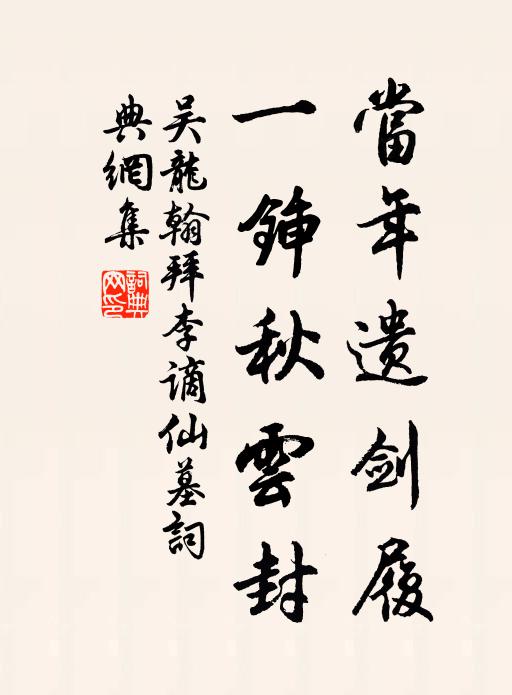 當年遺劍履
一鍤秋雲封
吴龍翰拜李謫仙墓詞
典網集
詞典
网印